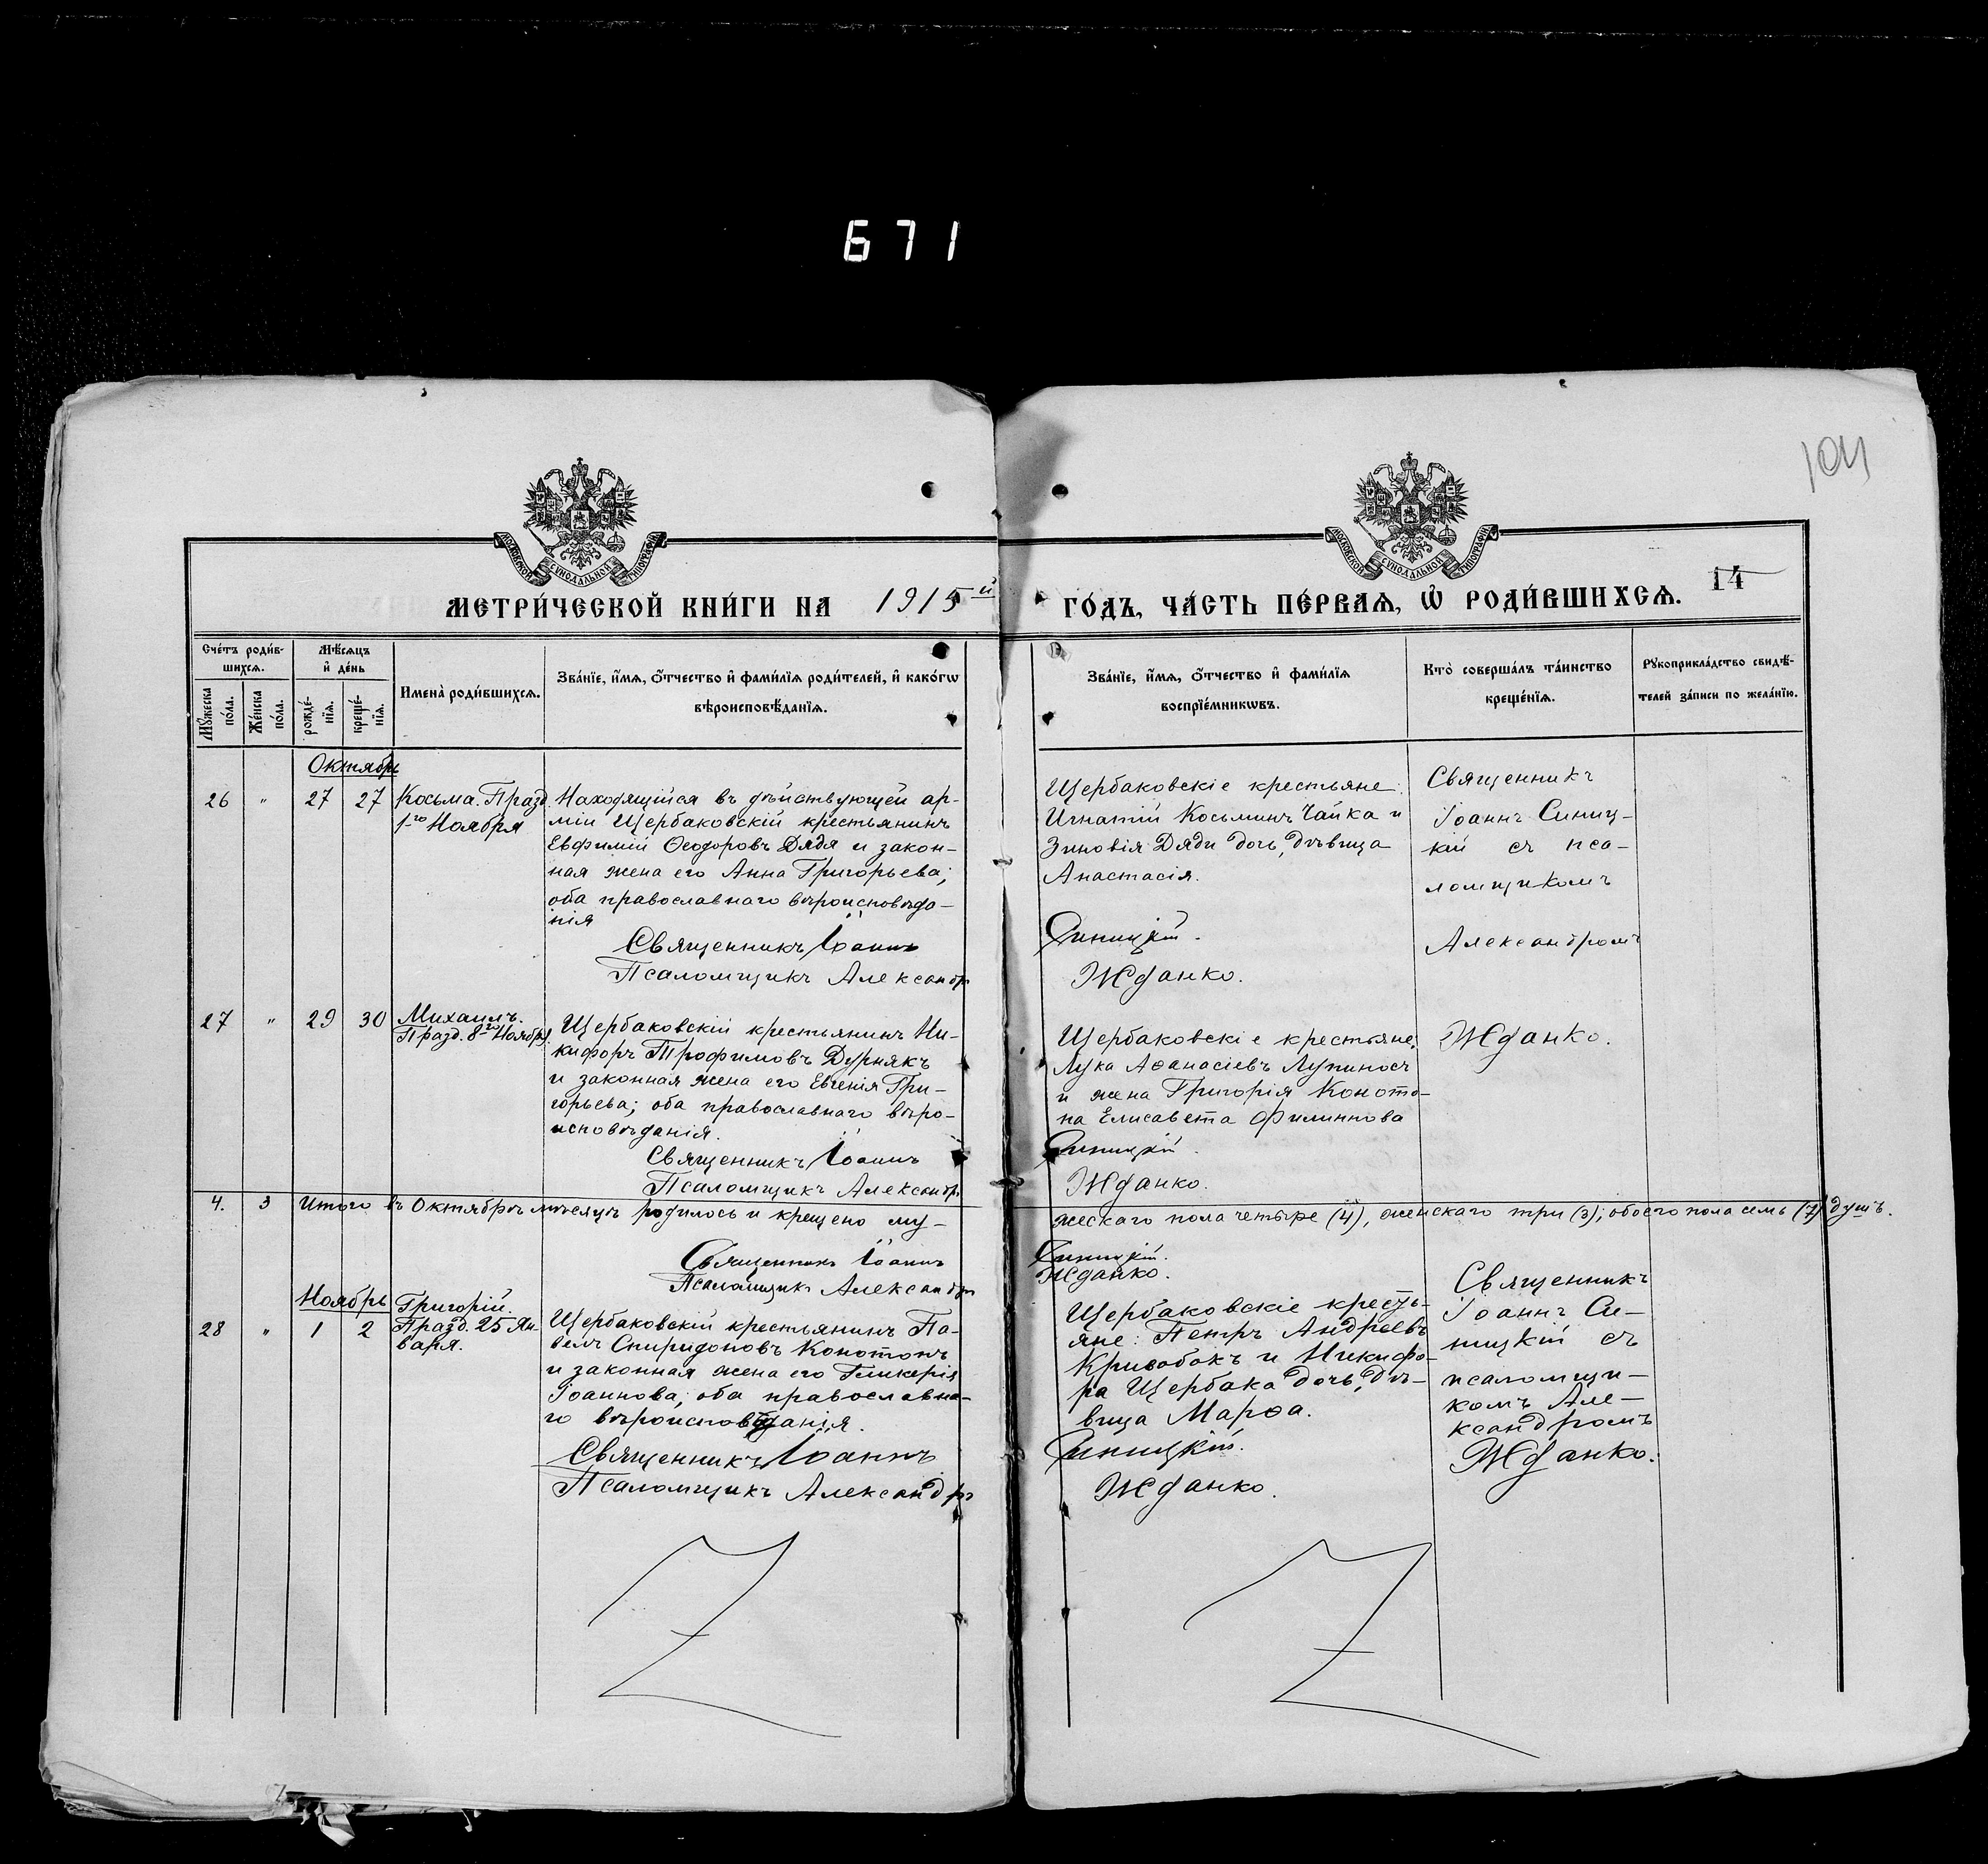 671
104
МОСКОВСКОЙ СѴНОДАЛЬНОЙ ТИПОГРАФІИ
МОСКОВСКОЙ СѴНОДАЛЬНОЙ ТИПОГРАФІИ
МЕТРИ́ЧЕСКОЙ КНИ́ГИ НА 1915й
ГО́ДЪ, ЧА́СТЬ ПЕ́РВАѦ, Ѡ҆ РОДИ́ВШИХСѦ. 14
Сче́тъ роди́в-
шихсѧ.
Мꙋ́жеска по́ла.
Же́нска по́ла.
Мѣ́сѧцъ
и҆ де́нь
рожде́-
нїѧ.
креще́-
нїѧ.
Имена̀ роди́вшихсѧ.
Зва́нїе, и҆́мѧ, ѻ҆́тчество и҆ фами́лїѧ роди́телей, и҆ како́гѡ
вѣроисповѣ́данїѧ.
Зва́нїе, и҆́мѧ, ѻ҆́тчество и҆ фами́лїѧ
воспрїе́мникѡвъ.
Кто̀ соверша́лъ та́инство
креще́нїѧ.
Рꙋкоприкла́дство свидѣ́-
телей за́писи по жела́нїю.
Октябрь
26 " 27 27 Косьма. Празд.
1го Ноября
Находящійся въ дѣйствующей ар-
міи Щербаковскій крестьянинъ
Евфимій Ѳеодоровъ Дядя и закон-
ная жена его Анна Григорьева;
оба православнаго вѣроисповѣда-
нія
Священникъ Іоаннъ
Псаломщикъ Александръ
Щербаковскіе крестьяне:
Игнатій Косьминъ Чайка и
Зиновія Дяди дочь, дѣвица
Анастасія.
Синицкій.
Жданко.
Священникъ
Іоаннъ Синиц-
кій съ пса-
ломщикомъ
Александромъ
27 " 29 30 Михаилъ.
Празд. 8го Ноября.
Щербаковскій крестьянинъ Ни-
кифоръ Трофимовъ Дурнякъ
и законная жена его Евгенія Гри-
горьева; оба православнаго вѣро-
исповѣданія.
Священникъ Іоаннъ
Псаломщикъ Александръ
Щербаковскіе крестьяне:
Лука Аѳанасіевъ Лупиносъ
и жена Григорія Коното-
па Елисавета Филиппова
Синицкій.
Жданко.
Жданко.
4. 3 Итого въ Октябрѣ мѣсяцѣ родилось и крещено му-
жескаго пола четыре (4), женскаго три (3); обоего пола семь (7) душъ.
Священникъ Іоаннъ
Псаломщикъ Александръ
Синицкій.
Жданко.
Ноябрь
28 " 1 2 Григорій.
Празд. 25 Ян-
варя.
Щербаковскій крестьянинъ Па-
велъ Спиридоновъ Конотопъ
и законная жена его Гликерія
Іоаннова; оба православна-
го вѣроисповѣданія.
Священникъ Іоаннъ
Псаломщикъ Александръ
Щербаковскіе кресть-
яне: Петръ Андреевъ
Кривобокъ и Никифо-
ра Щербака дочь, дѣ-
вица Марѳа.
Синицкій.
Жданко.
Священникъ
Іоаннъ Си-
ницкій съ
псаломщи-
комъ Але-
ксандромъ
Жданко.